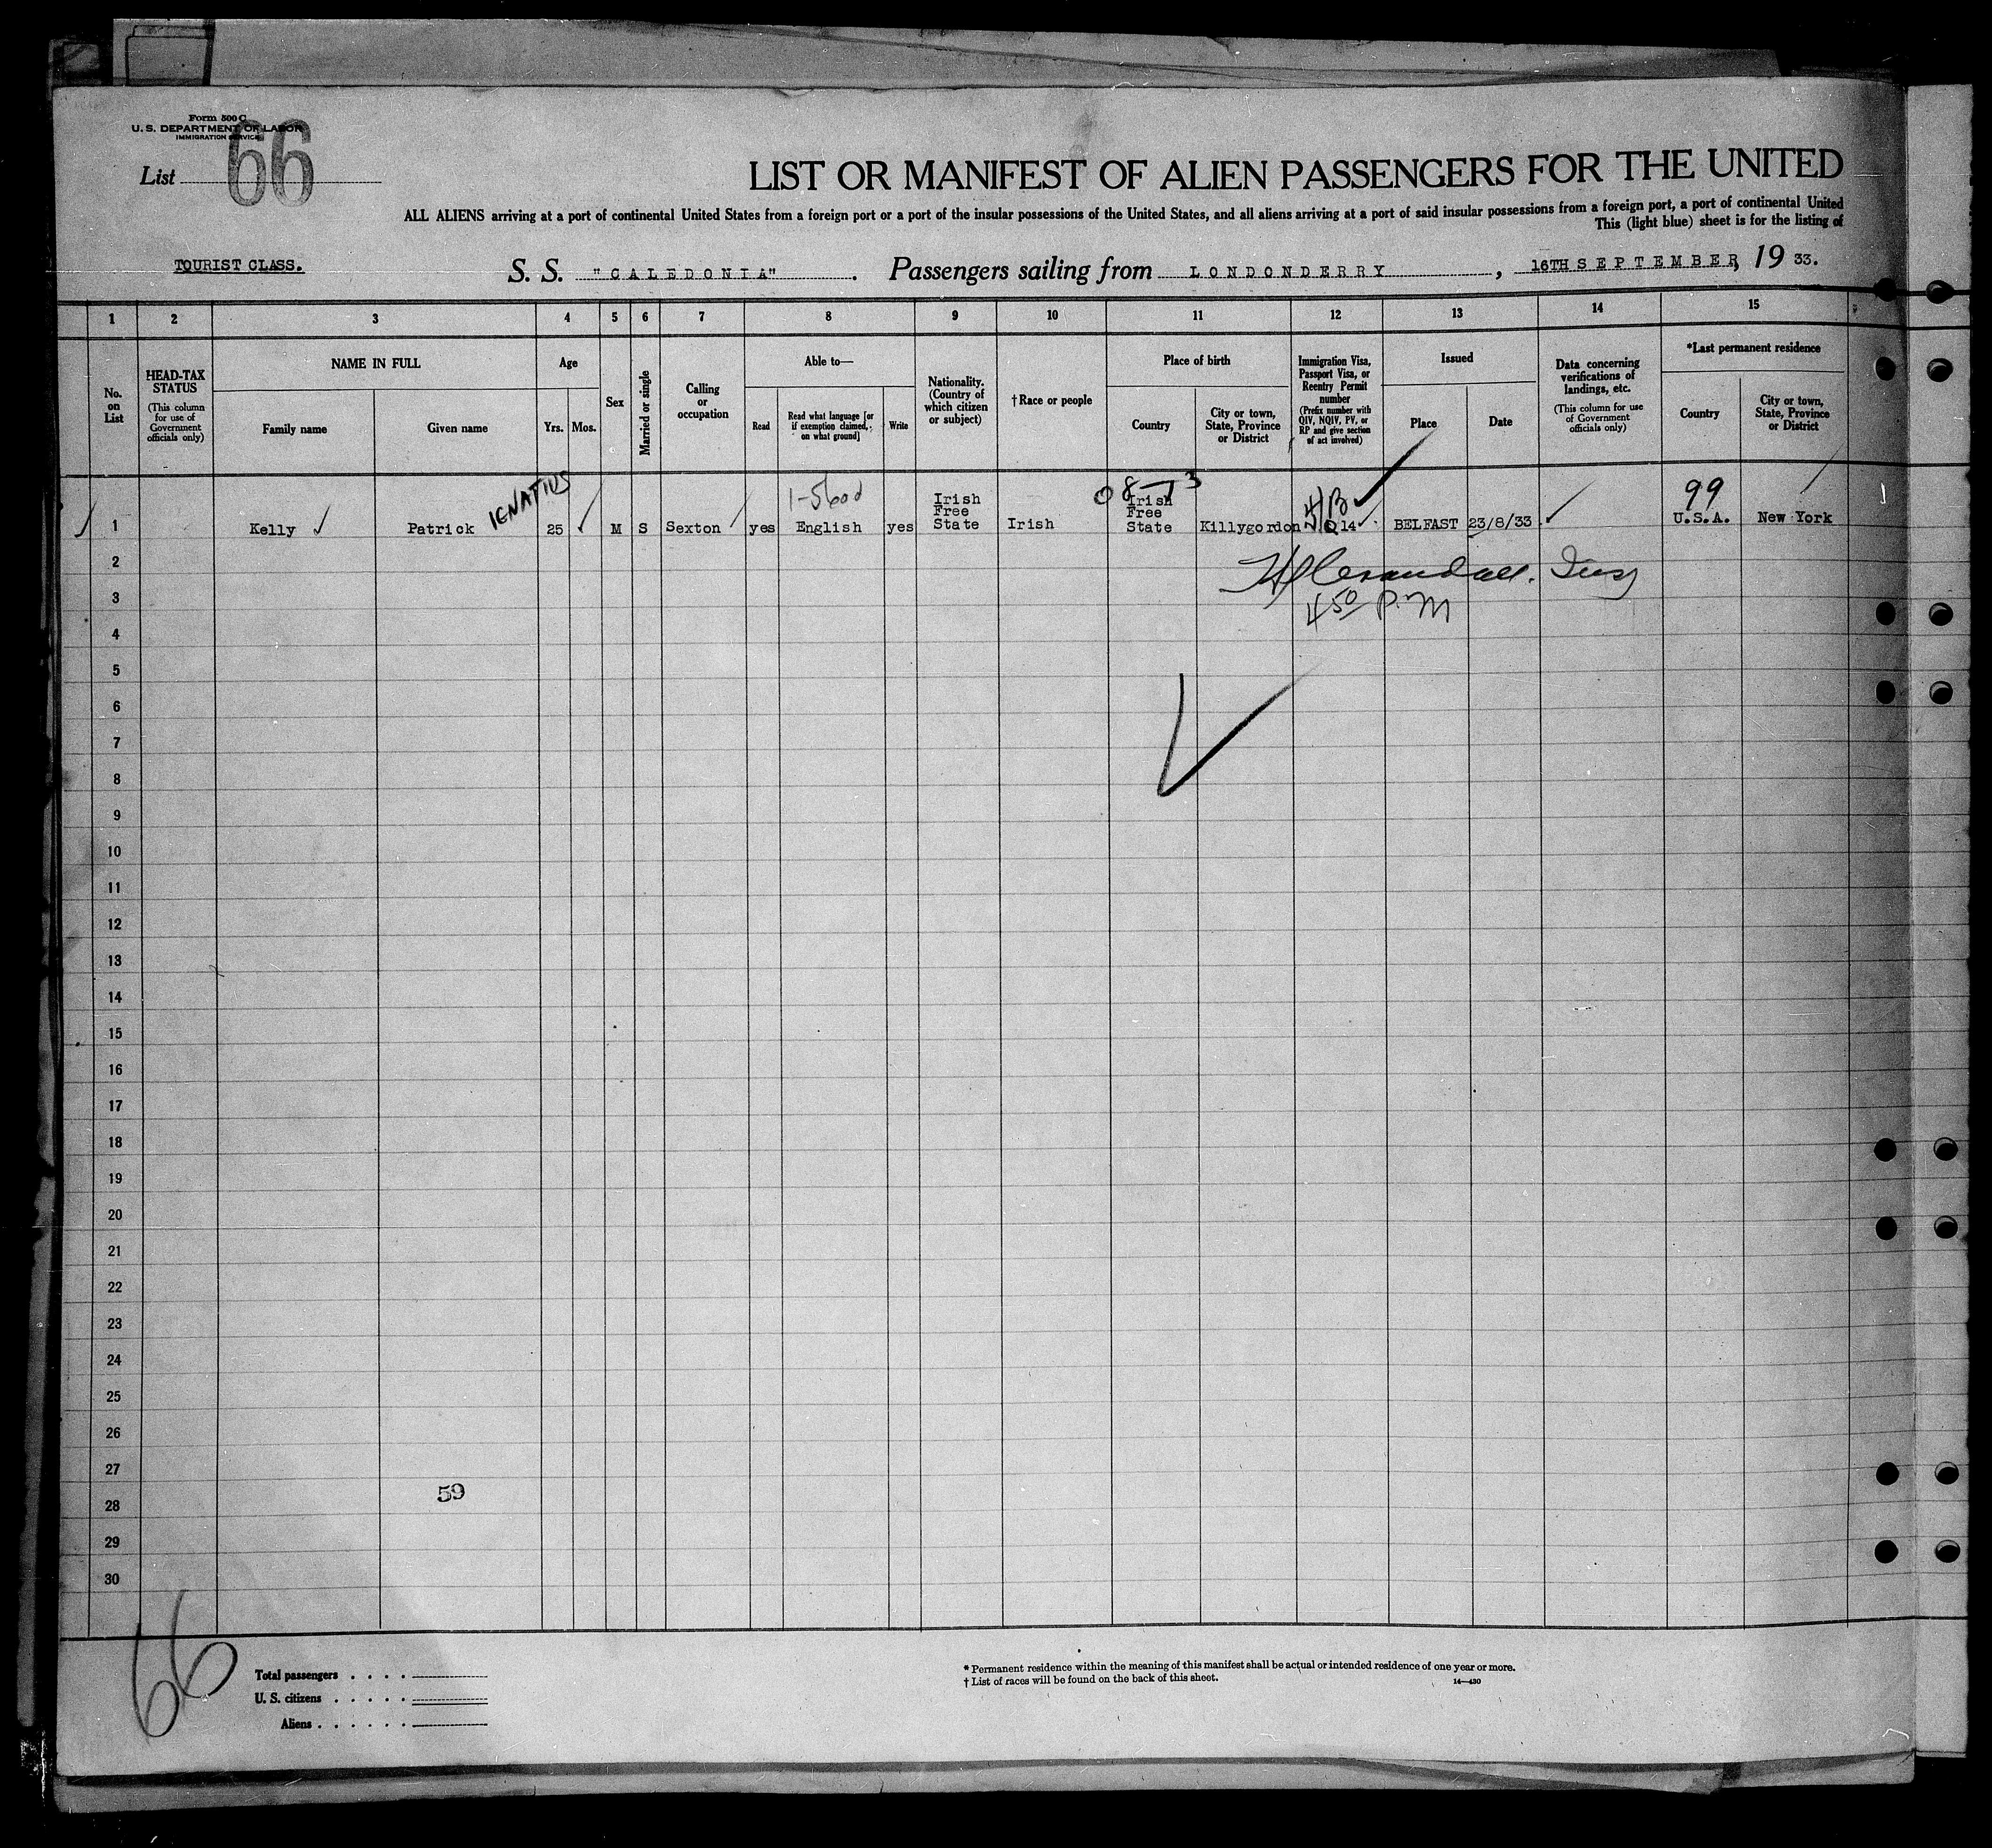 Form 500 C
U. S. DEPARTMENT OF LABOR
IMMIGRATION SERVICE
List 66
LIST OR MANIFEST OF ALIEN PASSENGERS FOR THE UNITED
ALL ALIENS arriving at a port of continental United States from a foreign port or a port of the insular possessions of the United States, and all aliens arriving at a port of said insular possessions from a foreign port, a port of continental United
This (light blue) sheet is for the listing of
TOURIST CLASS.
S. S. "CALEDONIA". Passengers sailing from LONDONDERRY, 16TH SEPTEMBER, 19 33.
1 2 3 4 5 6 7 8 9 10 11 12 13 14 15
No. on List
HEAD-TAX STATUS
(This column for use of Government officials only)
NAME IN FULL
Family name
Given name
Age
Yrs. Mos.
Sex
Married or single
Calling or occupation
Able to—
Read
Read what language [or if exemption claimed, on what ground]
Write
Nationality. (Country of which citizen or subject)
† Race or people
Place of birth
Country
City or town, State, Province or District
Immigration Visa, Passport Visa, or Reentry Permit number
(Prefix number with QIV, NQIV, PV, or RP and give section of act involved)
Issued
Place
Date
Data concerning verifications of landings, etc.
(This column for use of Government officials only)
*Last permanent residence
Country
City or town, State, Province or District
1 Kelly Patrick IGNATIUS 25 M S Sexton yes English yes Irish Free State Irish Irish Free State Killygordon Q 14 BELFAST 23/8/33 99 U.S.A. New York
2
3
4 50 P.M
4
5
6
7
8
9
10
11
12
13
14
15
16
17
18
19
20
21
22
23
24
25
26
27
59
28
29
30
66
Total passengers
U. S. citizens
Aliens
* Permanent residence within the meaning of this manifest shall be actual or intended residence of one year or more.
† List of races will be found on the back of this sheet.
14—430